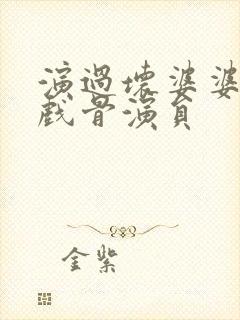 演過壞婆婆
戲骨演員
金紫